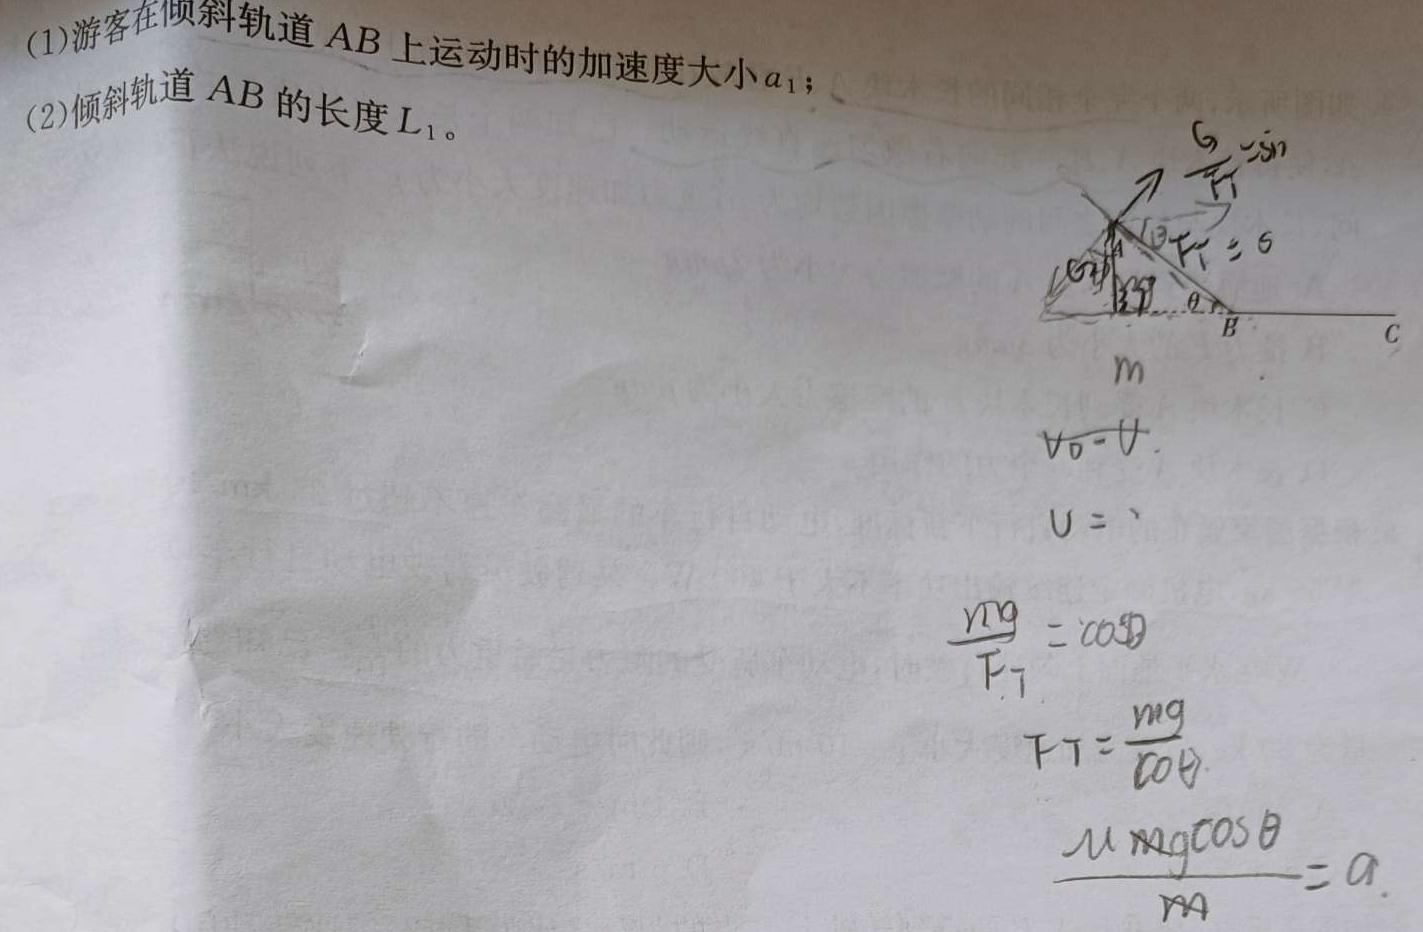 (1)游客在倾斜轨道 AB 上运动时的加速度大小a₁；
(2)倾斜轨道 AB 的长度L₁。
G/F_T=sin
F_T = G
A
θ
B
C
m
v₀-v.
v =
mg/F_T = cosθ
F_T = mg/cosθ.
μmgcosθ/m = a.